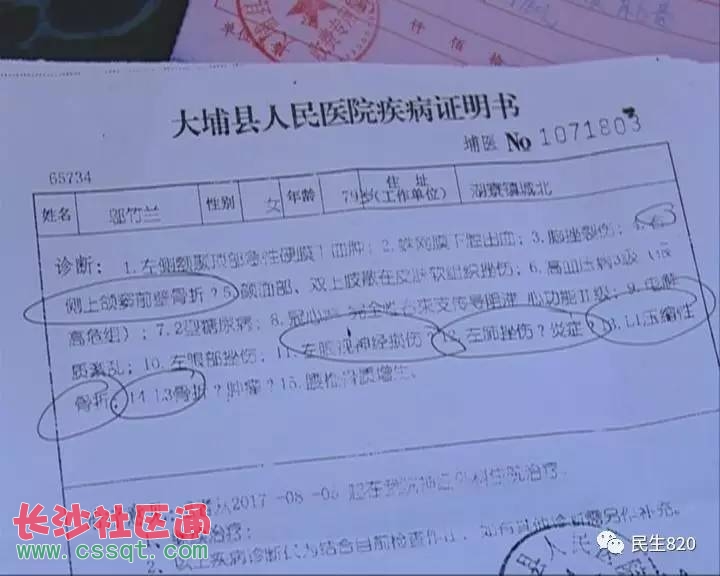 单位
仟 佰 拾
大埔县人民医院疾病证明书
埔医 No 1071803
65734
姓名 邬竹兰 性别 女 年龄 79岁 住址(工作单位) 湖寮镇城北
诊断: 1.左侧额颞顶部急性硬膜下血肿; 2.蛛网膜下腔出血; 3.脑挫裂伤; 4.右
侧上颌窦前壁骨折? 5. 部、双上肢散在皮肤软组织挫伤; 6.高血压病3级(极
高危组); 7.2型糖尿病; 8.冠心病 完全性右束支传导阻滞 心功能II级; 9.电解
质紊乱; 10.左眼部挫伤; 11.左眼视神经损伤; 12.左肺挫伤?炎症? 13.L1压缩性
骨折; 14.L3骨折?肿瘤? 15.腰椎骨质增生。
2017-08-05 起在我院神经外科住院治疗。
治疗;
2、以上疾病诊断仅为结合目前检查作出, 如有其他诊断需另作补充。
县人民
长沙社区通
www.cssqt.com
民生820